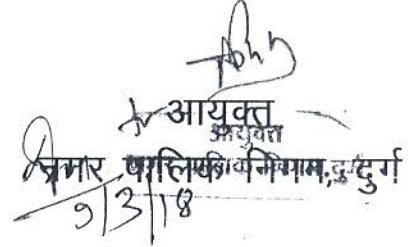 आयुक्त
आयुक्त
नगर पालिक निगम, दुर्ग
9/3/18